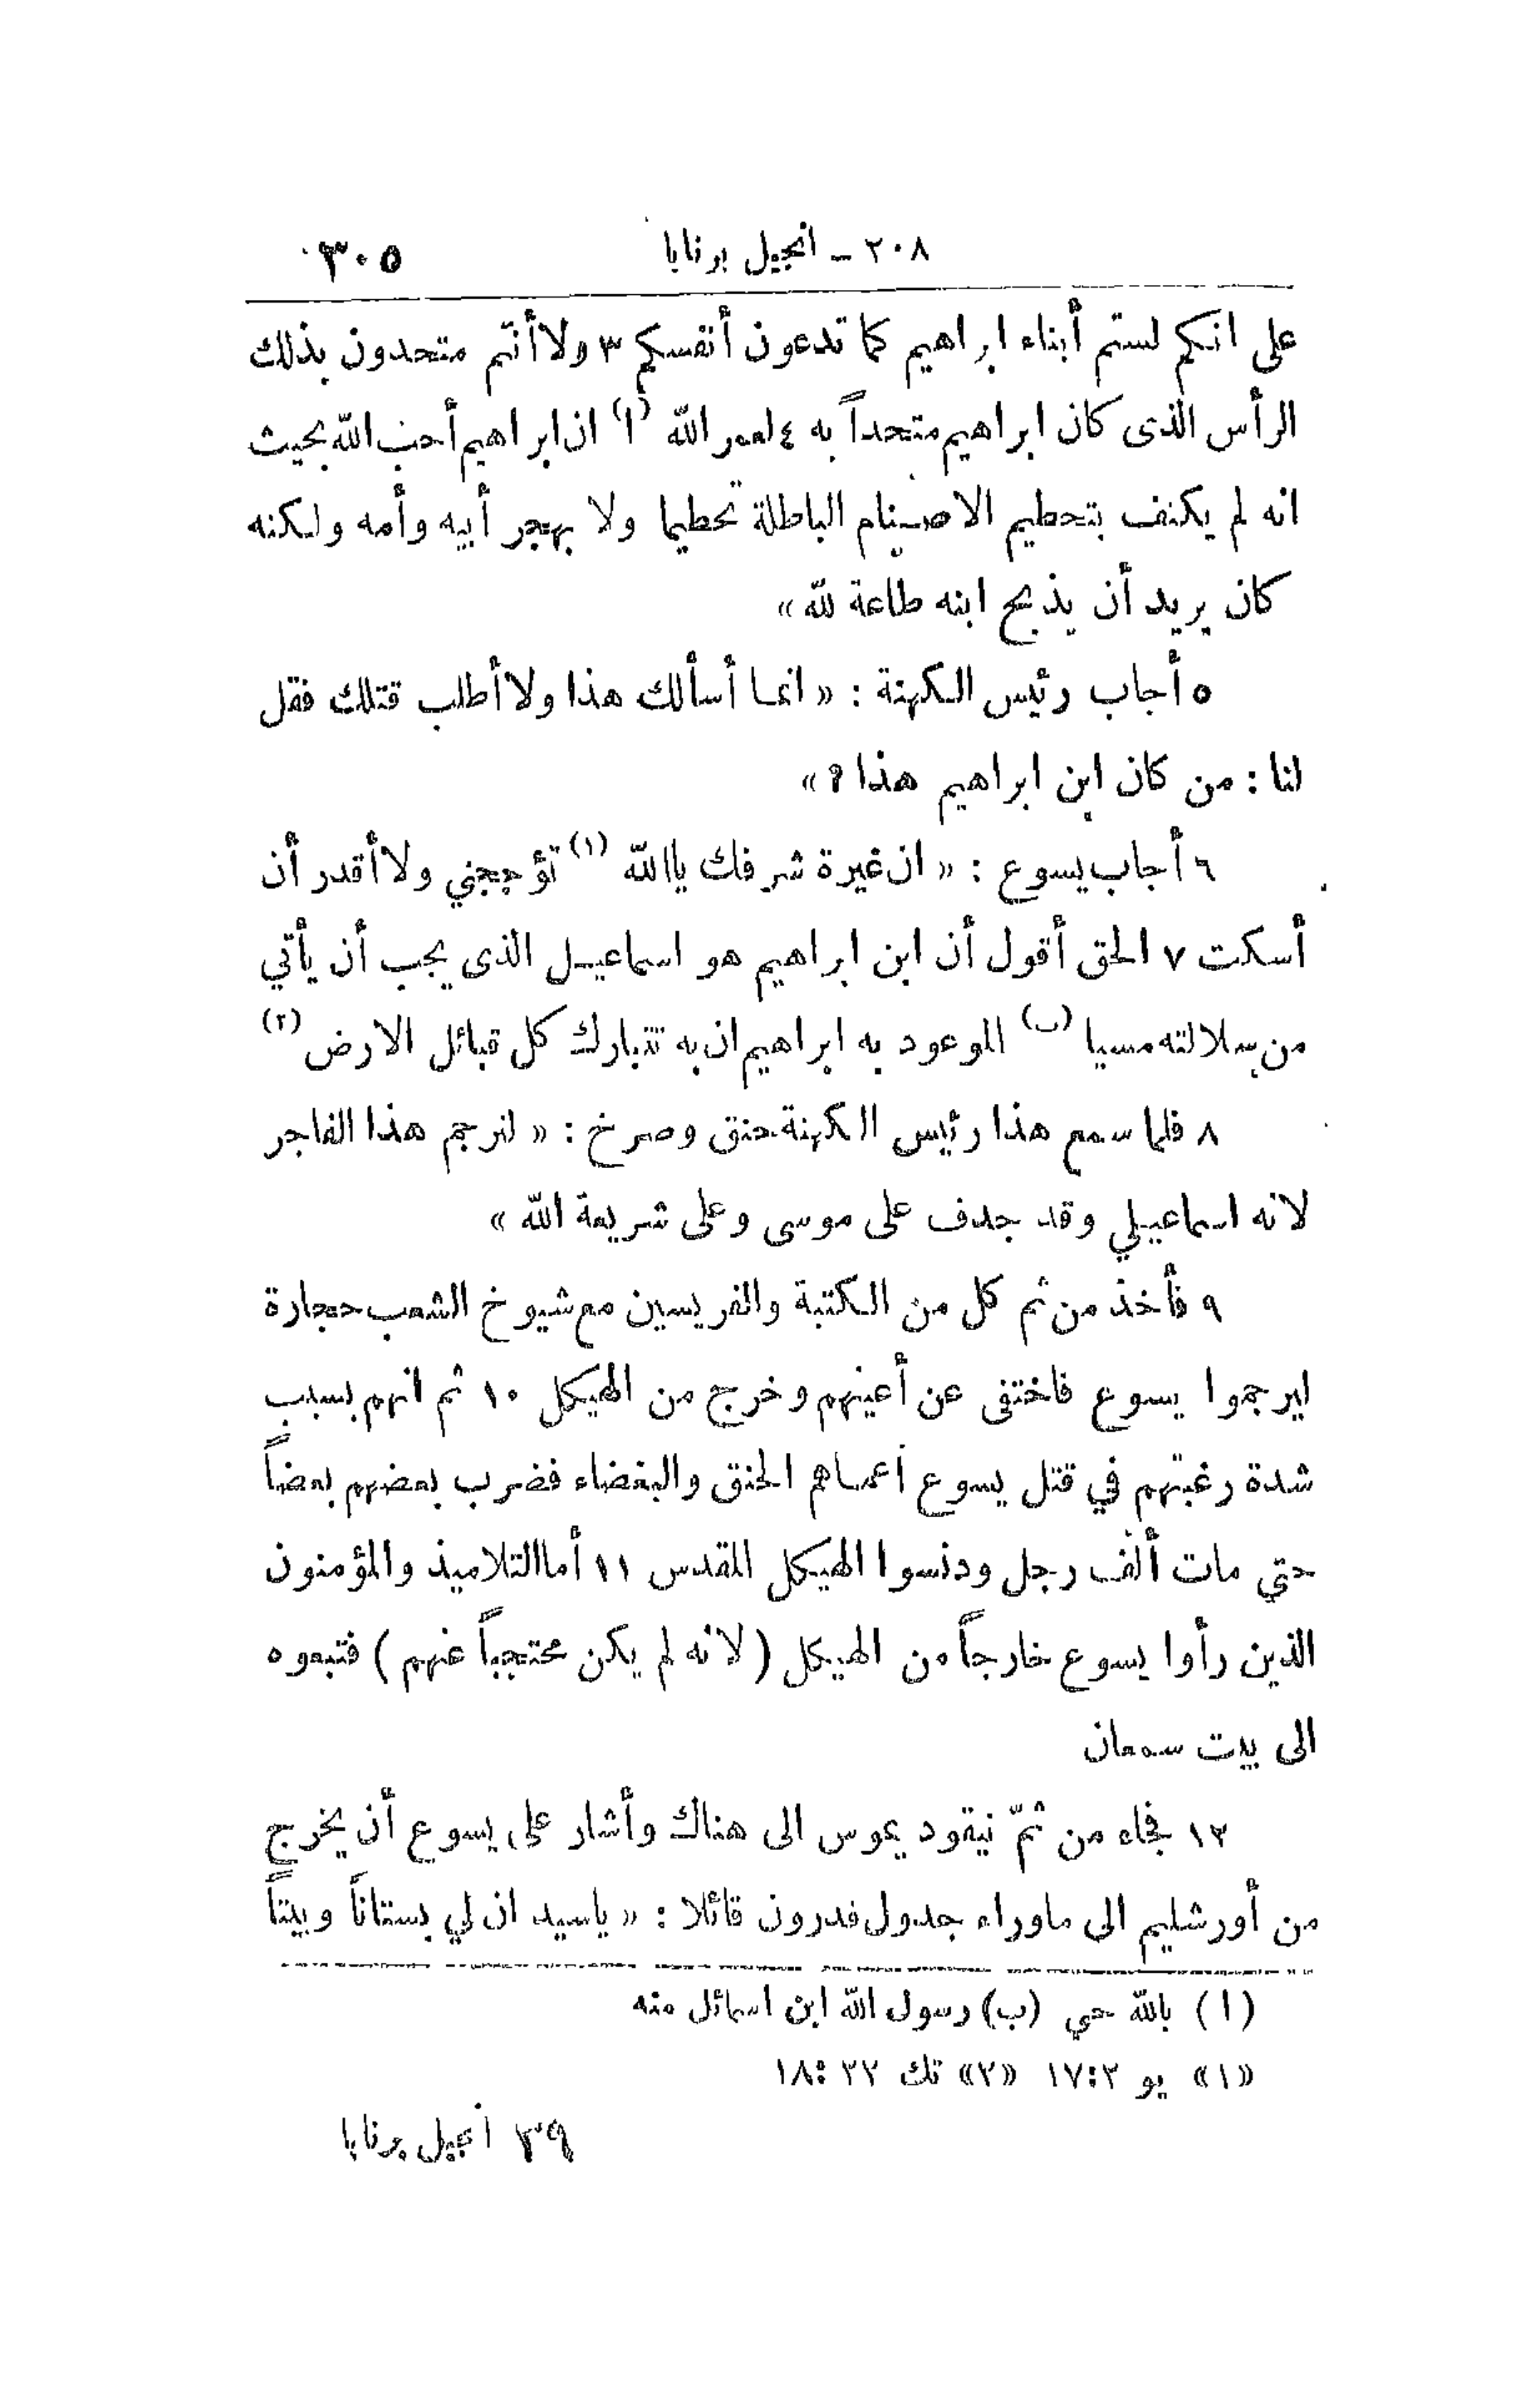 ٢٠٨ ـ انجيل برنابا ٣٠٥
على انكم لستم أبناء ابراهيم كما تدعون أنفسكم ٣ ولا أنتم متحدون بذلك
الرأس الذى كان ابراهيم متحداً به ٤ لعمر الله (ا) ان ابراهيم أحب الله بحيث
انه لم يكتف بتحطيم الاصنام الباطلة تحطيما ولا بهجر أبيه وأمه ولكنه
كان يريد أن يذبح ابنه طاعة لله »
٥ أجاب رئيس الكهنة : « انما أسألك هذا ولا أطلب قتلك فقل
لنا : من كان ابن ابراهيم هذا ؟ »
٦ أجاب يسوع : « ان غيرة شرفك يا الله (١) تؤججني ولا أقدر أن
أسكت ٧ الحق أقول أن ابن ابراهيم هو اسماعيل الذى يجب أن يأتي
من سلالته مسيا (ب) الموعود به ابراهيم ان به تتبارك كل قبائل الارض (٢)
٨ فلما سمع هذا رئيس الكهنة حنق وصرخ : « لنرجم هذا الفاجر
لانه اسماعيلي وقد جدف على موسى وعلى شريعة الله »
٩ فأخذ من ثم كل من الكتبة والفريسين مع شيوخ الشعب حجارة
ليرجموا يسوع فاختفى عن أعينهم وخرج من الهيكل ١٠ ثم انهم بسبب
شدة رغبتهم في قتل يسوع أعماهم الحنق والبغضاء فضرب بعضهم بعضاً
حتى مات ألف رجل ودنسوا الهيكل المقدس ١١ أما التلاميذ والمؤمنون
الذين رأوا يسوع خارجاً من الهيكل ( لانه لم يكن محتجباً عنهم ) فتبعوه
الى بيت سمعان
١٢ فجاء من ثمّ نيقوديموس الى هناك وأشار على يسوع أن يخرج
من أورشليم الى ماوراء جدول قدرون قائلا : « ياسيد ان لي بستاناً وبيتاً
(ا) بالله حي (ب) رسول الله ابن اسمائل منه
«١» يو ١٧:٢ «٢» تك ٢٢ : ١٨
٣٩ انجيل برنابا